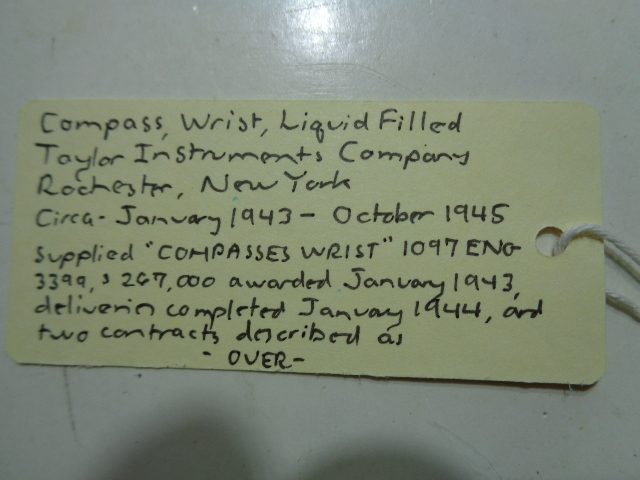 Compass, Wrist, Liquid Filled
Taylor Instruments Company
Rochester, New York
Circa - January 1943 - October 1945
Supplied "COMPASSES WRIST" 1097 ENG
3399, $ 267,000 awarded January 1943,
deliveries completed January 1944, and
two contracts described as
- OVER -